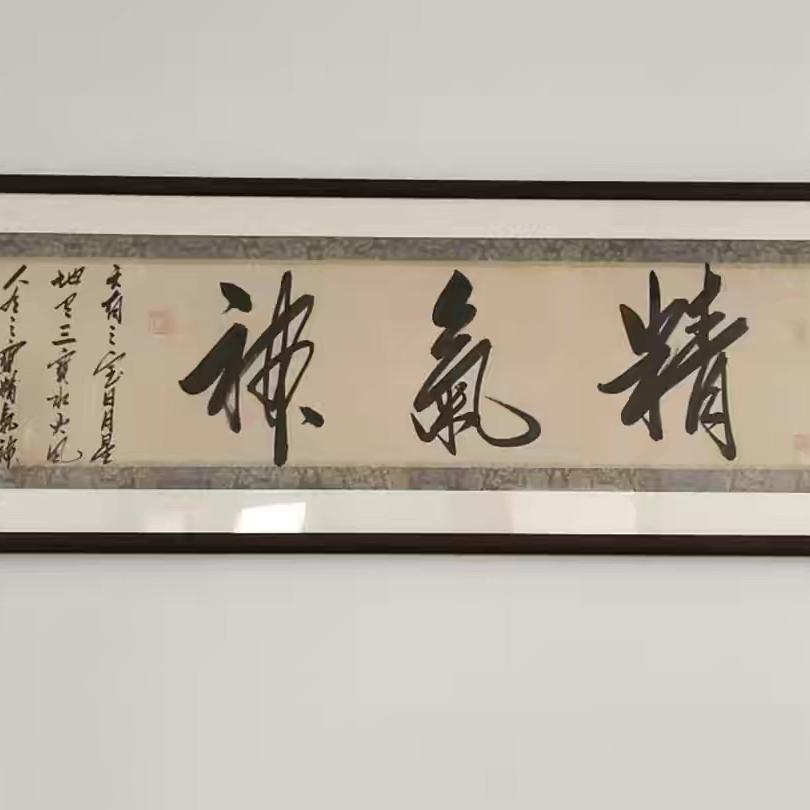 精氣神
天有三宝日月星
地有三寶水火风
人有三寶精氣神